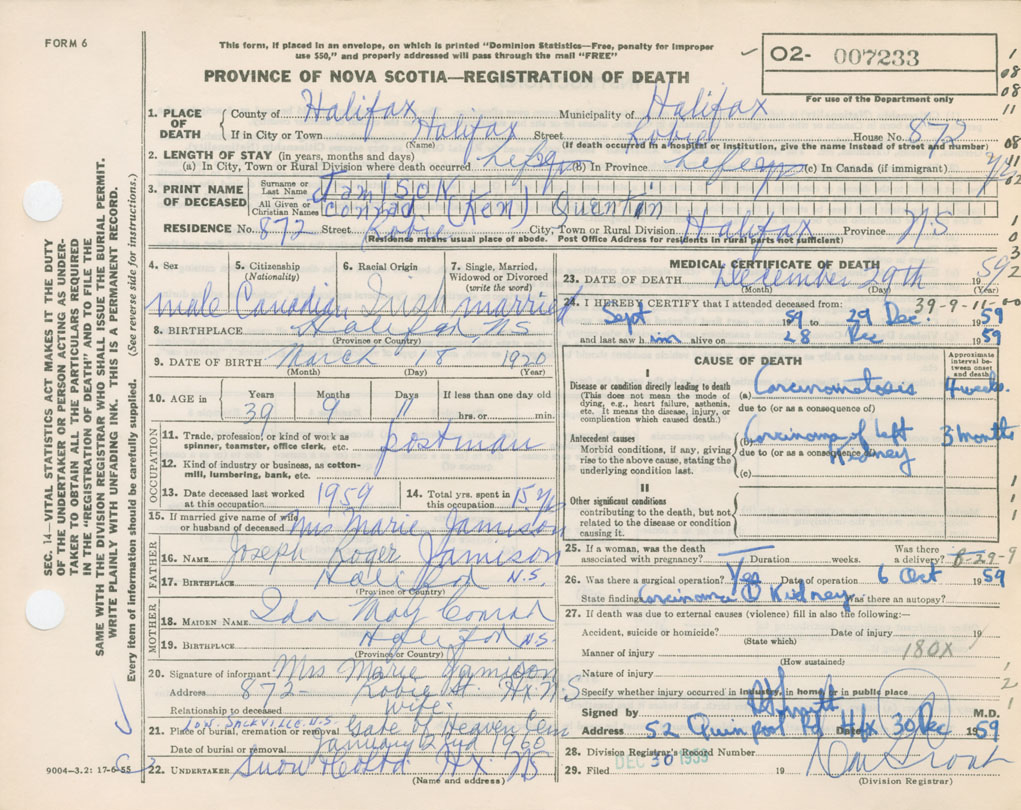 FORM 6
This form, if placed in an envelope, on which is printed "Dominion Statistics—Free, penalty for improper
use $50," and properly addressed will pass through the mail "FREE"
PROVINCE OF NOVA SCOTIA—REGISTRATION OF DEATH
O2- 007233
For use of the Department only
SEC. 14—VITAL STATISTICS ACT MAKES IT THE DUTY
OF THE UNDERTAKER OR PERSON ACTING AS UNDER-
TAKER TO OBTAIN ALL THE PARTICULARS REQUIRED
IN THE "REGISTRATION OF DEATH" AND TO FILE THE
SAME WITH THE DIVISION REGISTRAR WHO SHALL ISSUE THE BURIAL PERMIT.
WRITE PLAINLY WITH UNFADING INK. THIS IS A PERMANENT RECORD.
Every item of information should be carefully supplied. (See reverse side for instructions.)
1. PLACE OF DEATH County of Halifax Municipality of Halifax
If in City or Town Halifax Street Robie House No. 872
(Name) (If death occurred in a hospital or institution, give the name instead of street and number)
2. LENGTH OF STAY (in years, months and days)
(a) In City, Town or Rural Division where death occurred (b) In Province (c) In Canada (if immigrant)
3. PRINT NAME OF DECEASED Surname or Last Name Jamison
All Given or Christian Names Conrad (Ken) Quentin
RESIDENCE No. 872 Street Robie City, Town or Rural Division Halifax Province NS
Residence means usual place of abode. Post Office Address for residents in rural parts not sufficient)
4. Sex 5. Citizenship (Nationality) 6. Racial Origin 7. Single, Married, Widowed or Divorced (write the word)
male Canadian Irish married
8. BIRTHPLACE Halifax NS
(Province or Country)
9. DATE OF BIRTH March 18 1920
(Month) (Day) (Year)
10. AGE in Years Months Days If less than one day
39 9 11 hrs. or min.
OCCUPATION
11. Trade, profession, or kind of work as spinner, teamster, office clerk, etc. postman
12. Kind of industry or business, as cotton-mill, lumbering, bank, etc.
13. Date deceased last worked at this occupation 1959 14. Total yrs. spent in this occupation 15 yrs
15. If married give name of wife or husband of deceased Mrs Marie Jamison
FATHER
16. NAME Joseph Roger Jamison
17. BIRTHPLACE Halifax N.S.
(Province or Country)
MOTHER
18. MAIDEN NAME Ida May Conrad
19. BIRTHPLACE Halifax N.S.
(Province or Country)
20. Signature of informant Mrs Marie Jamison
Address 872 Robie St. Hx. N.S
Relationship to deceased wife.
LOW. SACKVILLE, N.S.
21. Place of burial, cremation or removal Gate of Heaven Cem
Date of burial or removal January 2nd 1960
22. UNDERTAKER Snow Co Ltd Hx NS
(Name and address)
9004-3.2: 17-6-55
MEDICAL CERTIFICATE OF DEATH
23. DATE OF DEATH December 29th 1959
(Month) (Day) (Year)
24. I HEREBY CERTIFY that I attended deceased from: 39-9-11-00
Sept 59 to 29 Dec. 1959
and last saw him alive on 28 Dec 1959
CAUSE OF DEATH
Approximate interval between onset and death
I
Disease or condition directly leading to death
(This does not mean the mode of dying, e.g., heart failure, asthenia, etc. It means the disease, injury, or complication which caused death.)
(a) Carcinomatosis 4 weeks.
due to (or as a consequence of)
Antecedent causes
Morbid conditions, if any, giving rise to the above cause, stating the underlying condition last.
(b) Carcinoma of Left Kidney 3 months
due to (or as a consequence of)
(c)
II
Other significant conditions
contributing to the death, but not related to the disease or condition causing it.
25. If a woman, was the death associated with pregnancy? Duration weeks. Was there a delivery? 8-29-9
26. Was there a surgical operation? Yes Date of operation 6 Oct 1959
State findings Carcinoma Kidney Was there an autopsy?
27. If death was due to external causes (violence) fill in also the following:—
Accident, suicide or homicide? Date of injury 19
(State which)
Manner of injury 180X
(How sustained)
Nature of injury
Specify whether injury occurred in industry, in home, or in public place
Signed by M.D.
Address 52 Quinpool Rd Hfx Date 30 Dec 1959
28. Division Registrar's Record Number
29. Filed DEC 30 1959 19
(Division Registrar)